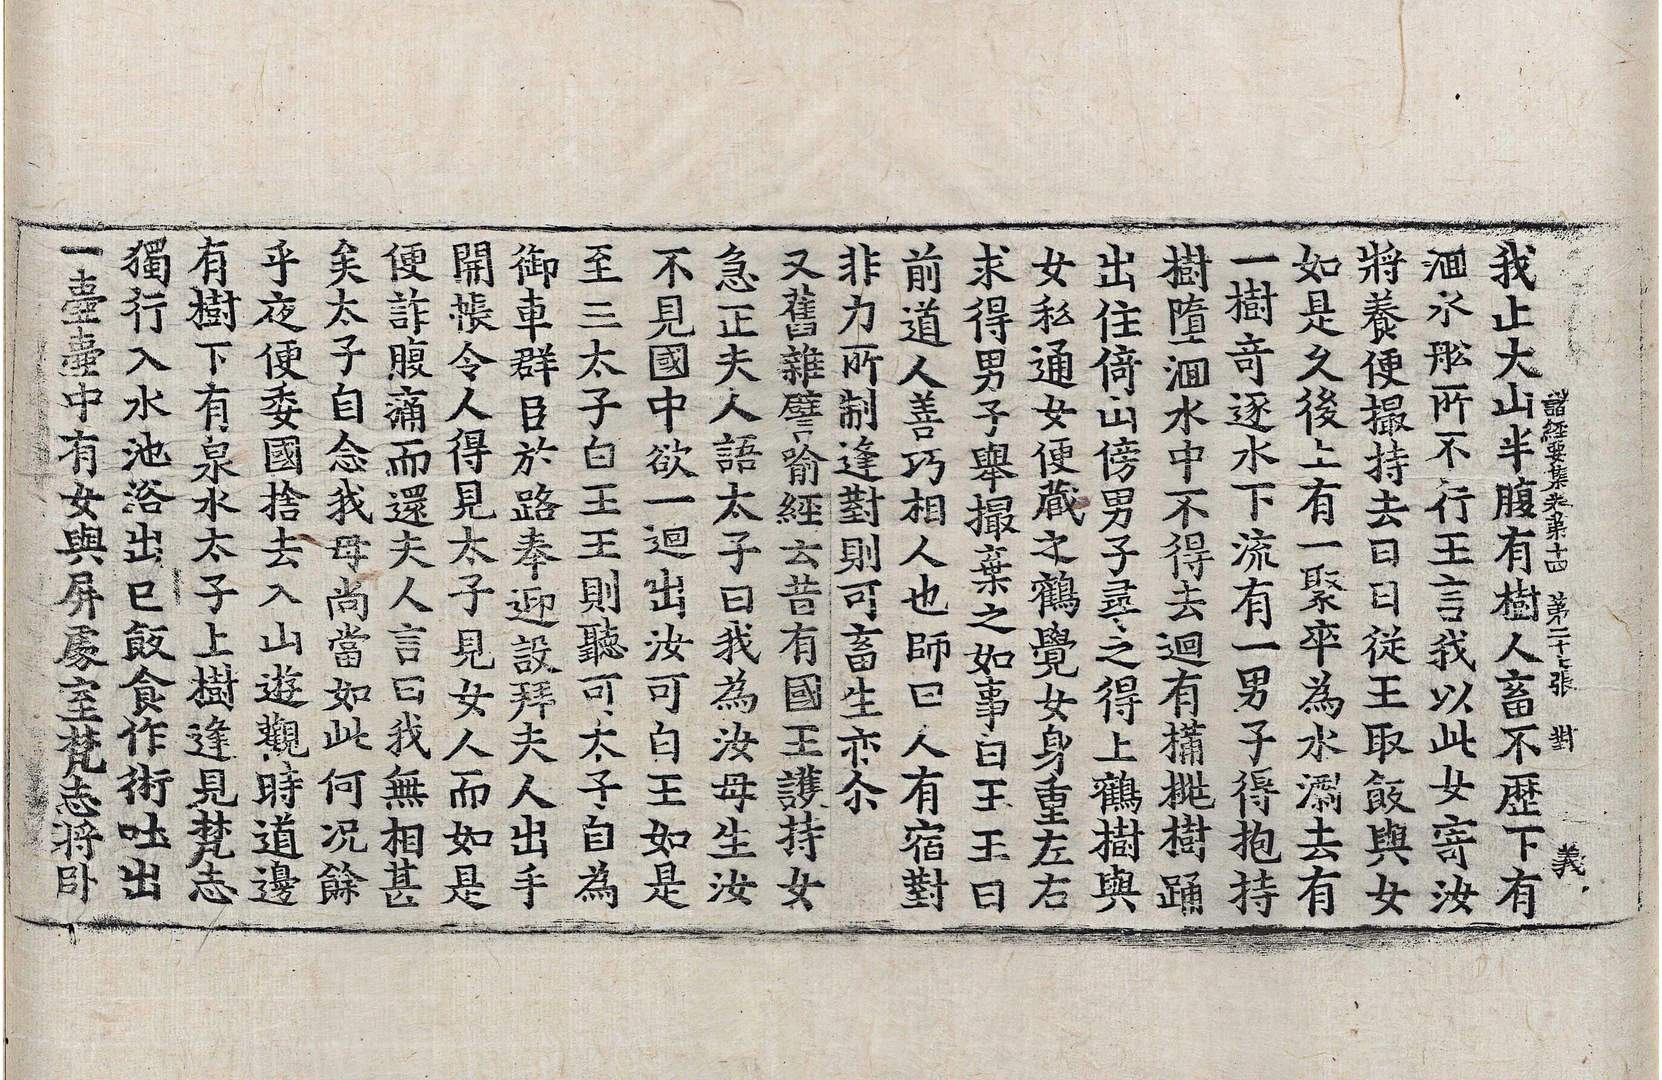 諸經要集卷第十四 第二十七張 對 義
我止大山半腹有樹人畜不歷下有
洄水船所不行王言我以此女寄汝
將養便撮持去日日從王取飯與女
如是久後上有一聚卒為水漂去有
一樹奇逐水下流有一男子得抱持
樹墮洄水中不得去迴有蒱桃樹踊
出住倚山傍男子尋之得上鶴樹與
女私通女便藏之鶴覺女身重左右
求得男子舉撮棄之如事白王王曰
前道人善巧相人也師曰人有宿對
非力所制逢對則可畜生亦尒
又舊雜譬喻經云昔有國王護持女
急正夫人語太子曰我為汝母生汝
不見國中欲一迴出汝可白王如是
至三太子白王王則聽可太子自為
御車群臣於路奉迎設拜夫人出手
開帳令人得見太子見女人而如是
便詐腹痛而還夫人言曰我無相甚
矣太子自念我母尚當如此何況餘
乎夜便委國捨去入山遊觀時道邊
有樹下有泉水太子上樹逢見梵志
獨行入水池浴出巳飯食作術吐出
一壺壺中有女與屏處室梵志將卧